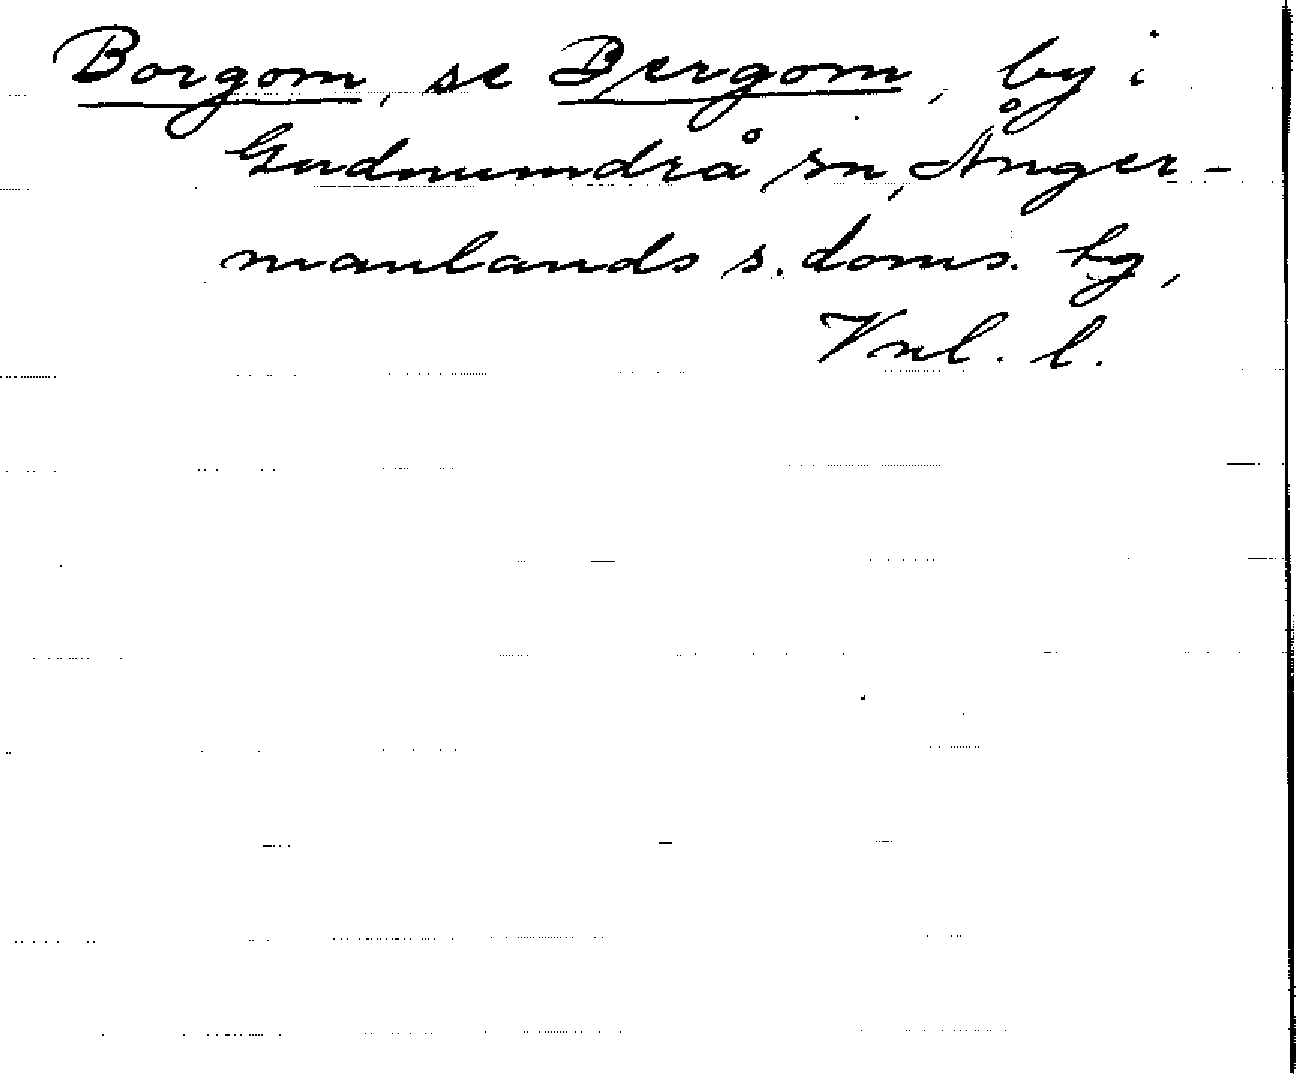 Borgom, se Bergom, by i
Gudmundrå sn, Ånger-
manlands s. doms. hg,
Vnl. l.